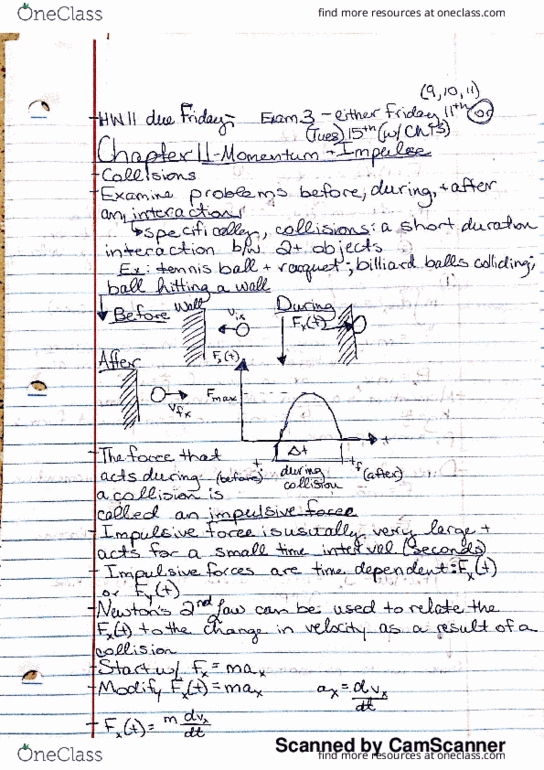 OneClass
find more resources at oneclass.com
(9,10,11)
-HW11 due Friday; Exam 3 - either Friday 11th or
(Tues) 15th (w/ Ch 13)
Chapter 11-Momentum-Impulse
-Collisions
-Examine problems before, during, + after
an interaction
↳specifically, collisions: a short duration
interaction b/w 2+ objects
Ex: tennis ball + racquet; billiard balls colliding;
ball hitting a wall
Before Wall During
Vix Fx(t)
After Fx(t)
Fmax
Vfx
t
-The force that Δt
acts during (before) during tf (after)
a collision is collision
called an impulsive force
-Impulsive force is usually very large +
acts for a small time interval (seconds)
-Impulsive forces are time dependent: Fx(t)
or Fy(t)
-Newton's 2nd law can be used to relate the
Fx(t) to the change in velocity as a result of a
collision
-Start w/ Fx = max
-Modify Fx(t) = max ax = dvx/dt
-Fx(t) = m dvx/dt
Scanned by CamScanner
OneClass
find more resources at oneclass.com